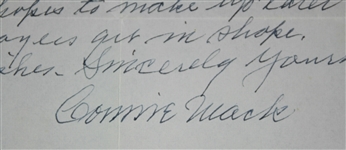 hopes to make up later
ayers get in shape.
shes. Sincerely Yours
Connie Mack